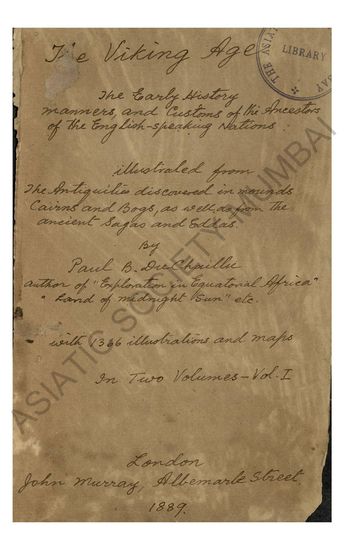 The Viking Age
LIBRARY
The Early History
manners and Customs of the Ancestors
of the English-speaking Nations:
illustrated from
The Antiquities discovered in mounds
Cairns and Bogs, as well as from the
ancient Sagas and Eddas.
By
Paul B. Du Chaillu
author of "Exploration in Equatorial Africa"
"Land of midnight Sun" etc.
with 1366 illustrations and maps
In Two Volumes - Vol. I
London
John Murray, Albemarle Street
1889.
ASIATIC SOCIETY MUMBAI